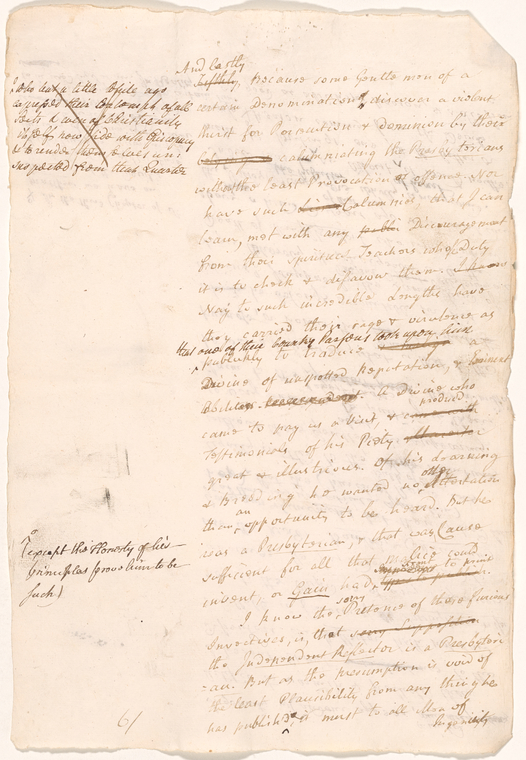 And lastly
Fifthly, Because some Gentlemen of a
certain Denomination, discover a violent
thirst for Promotion & dominion by their
calumniating the Presbyterians
without the least Provocation or offence. Nor
have such Calumnies, that I can
learn, met with any Discouragement
from their Spiritual Teachers whose Duty
it is to check & disavow them.
Nay to such incredible Lengths have
they carried their rage & virulence as
that one of their Country Parsons took upon him
publickly to traduce a
Divine of unspotted Reputation, & eminent
Abilities. A Divine who
came to pay us a visit, & produced
Testimonies of his Piety
great & illustrious. Of his Learning
& Breeding he wanted no other attestation
than an opportunity to be heard. But he
was a Presbyterian, & that was Cause
sufficient for all that malice could
invent, or Gain had to
I know the Pretence of these furious
Invectives, is, that
the Independent Reflector is a Presbyteri
=an. But as the presumption is void of
the least Plausibility from any thing he
has publish'd, it must to all Men of
Ingenuity
who but a little while ago
expressed their contempt of all
Sects & even of Christianity
itself now side with Episcopacy
& to render them
suspected from that Quarter
(except the Honesty of his
principles prove him to be
such)
61